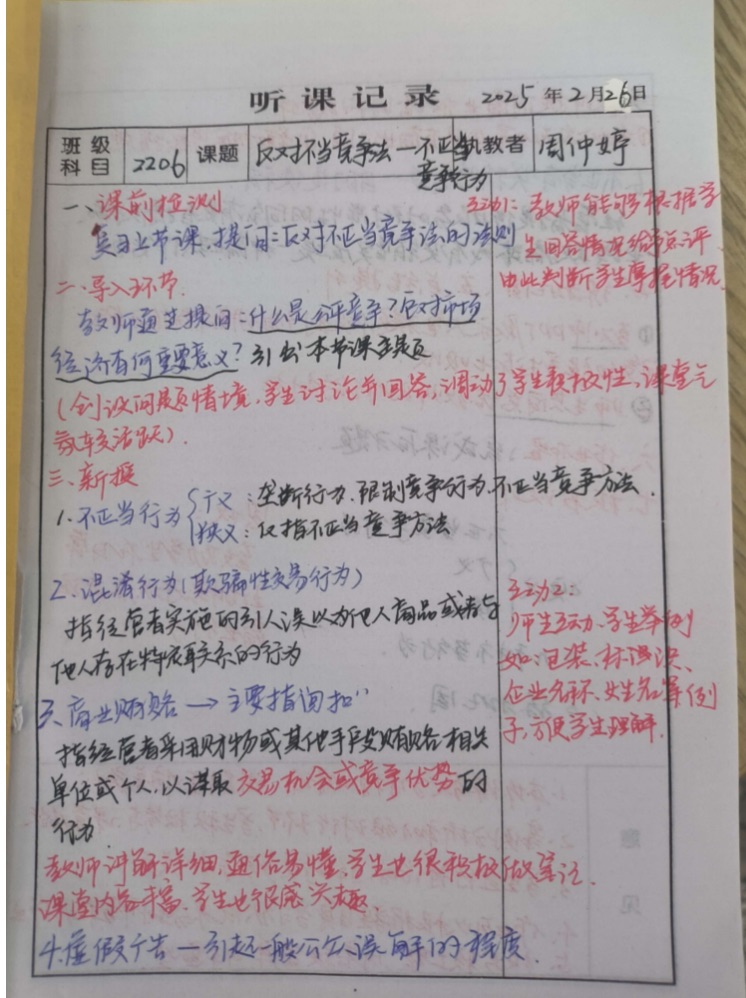 听课记录 2025年2月26日
班级科目 2206 课题 反对不当竞争法—不正当竞争行为 执教者 周仲婷
一、课前检测
复习上节课,提问:反对不正当竞争法的法则
互动1:教师能够根据学
生回答情况给予点评
由此判断学生掌握情况
二、导入环节.
教师通过提问:什么是公平竞争?它对市场
经济有何重要意义?引出本节课主题
(创设问题情境,学生讨论并回答,调动了学生积极性,课堂气
氛较活跃).
三、新授
1.不正当行为 广义:垄断行为、限制竞争行为、不正当竞争方法.
狭义:仅指不正当竞争方法
2.混淆行为(欺骗性交易行为)
指经营者实施的引人误以为他人商品或者与
他人存在特定联系的行为
互动2:
师生互动、学生举例
如:包装、标识、
企业名称、姓名等例
子,方便学生理解.
3、商业贿赂→主要指回扣
指经营者采用财物或其他手段贿赂相关
单位或个人,以谋取交易机会或竞争优势的
行为
教师讲解详细,通俗易懂,学生也很积极做笔记.
课堂内容丰富、学生也很感兴趣.
4.虚假广告—引起一般公众误解的程度.
意见